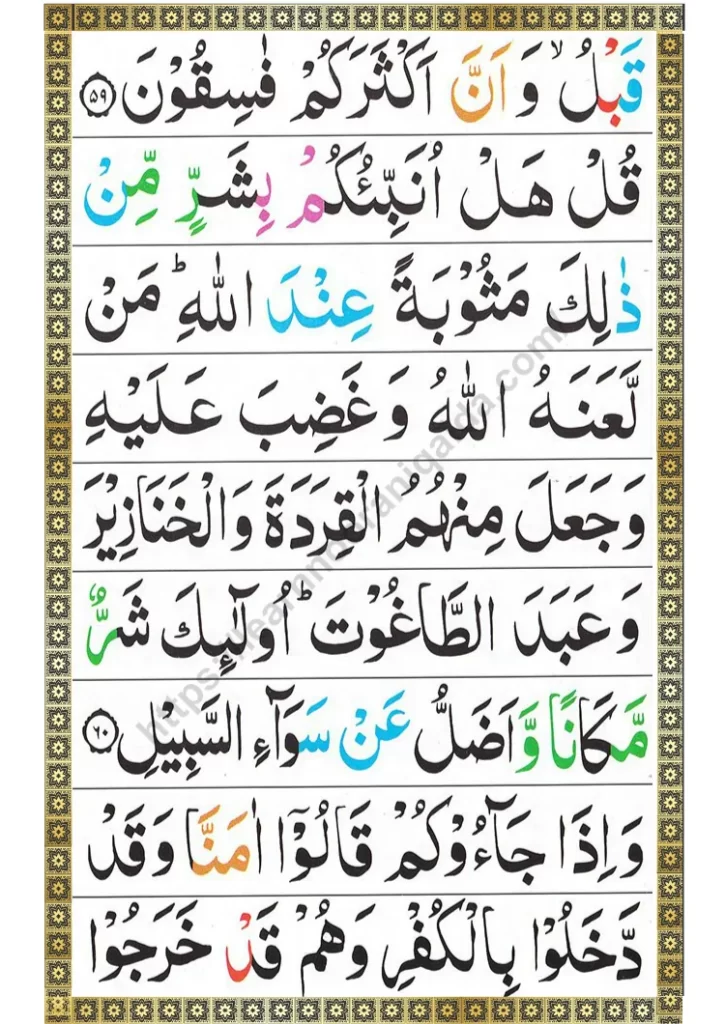 قَبْلُ ۙ وَ اَنَّ اَكْثَرَكُمْ فٰسِقُوْنَ ۝۵۹
قُلْ هَلْ اُنَبِّئُكُمْ بِشَرٍّ مِّنْ
ذٰلِكَ مَثُوْبَةً عِنْدَ اللّٰهِ ؕ مَنْ
لَّعَنَهُ اللّٰهُ وَ غَضِبَ عَلَيْهِ
وَ جَعَلَ مِنْهُمُ الْقِرَدَةَ وَالْخَنَازِيْرَ
وَ عَبَدَ الطَّاغُوْتَ ؕ اُولٰٓئِكَ شَرٌّ
مَّكَانًا وَّ اَضَلُّ عَنْ سَوَآءِ السَّبِيْلِ ۝۶۰
وَ اِذَا جَآءُوْكُمْ قَالُوْۤا اٰمَنَّا وَقَدْ
دَّخَلُوْا بِالْكُفْرِ وَهُمْ قَدْ خَرَجُوْا